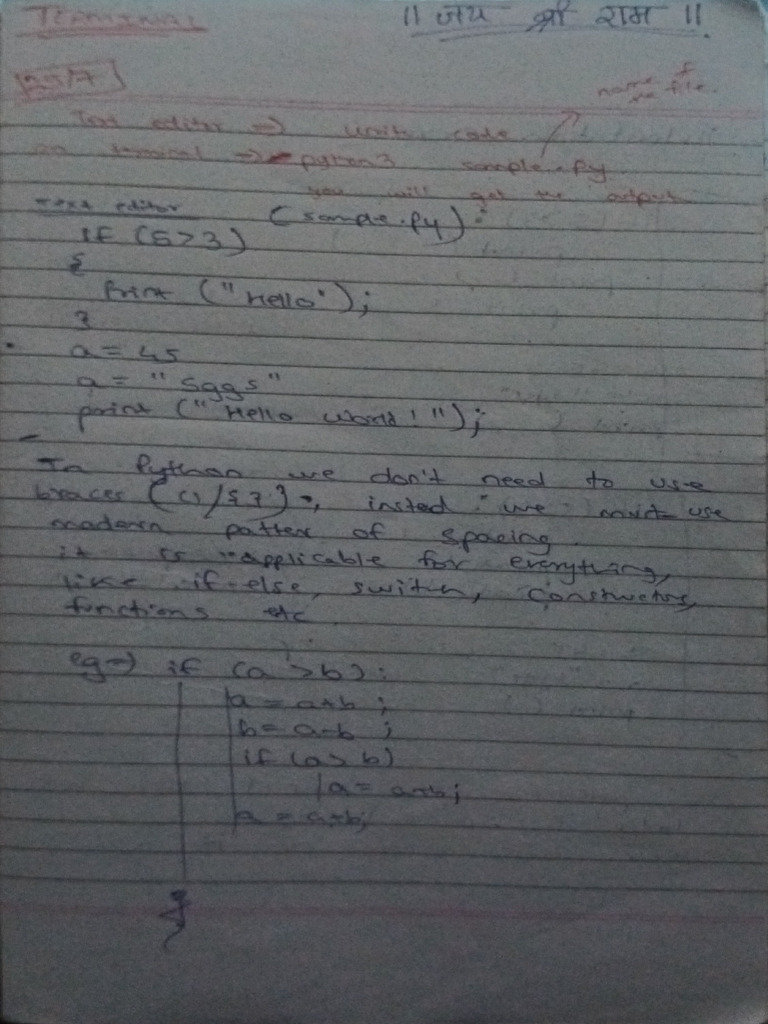 TERMINAL
|| जय श्री राम ||
name of
file.
Text editor => write code
on terminal => python3 sample.py
you will get the output
Text editor (sample.py) :
if (5>3)
{
Print ("Hello");
}
a = 45
a = "sggs"
print ("Hello World!");
In Python we don't need to use
braces (()/{}), insted we must use
modern patter of spacing.
it is applicable for everything,
like if-else, switch, constructors,
functions etc
eg → if (a > b):
a = a+b ;
b = a-b ;
if (a> b)
a = a+b;
a = a+b;
}